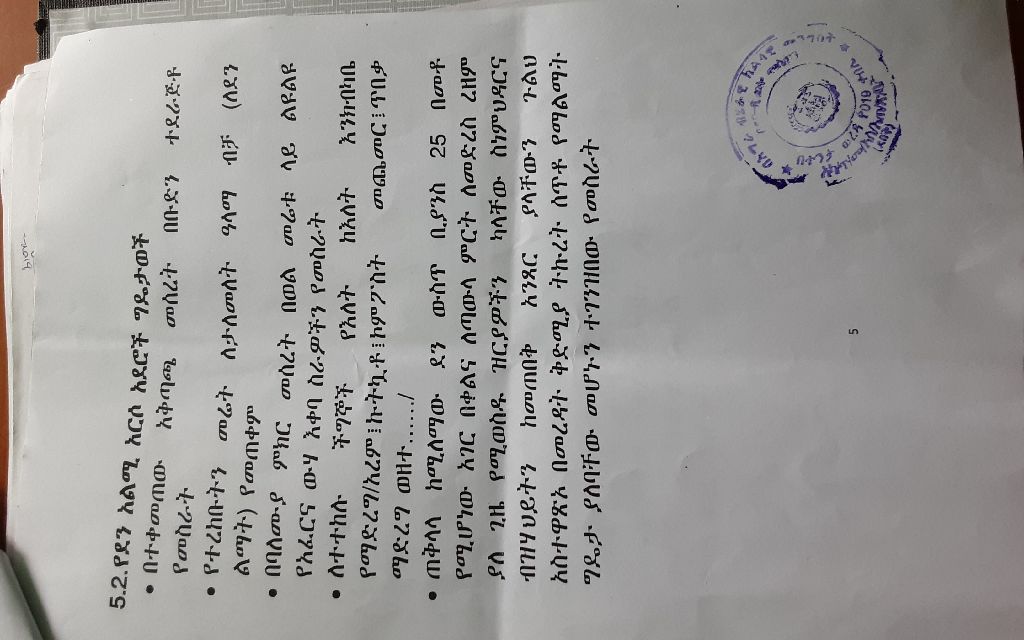 5.2. የደን አልሚ አርሶ አደሮች ግዴታወች
• በተቀመጠው አቅጣጫ መሰረት በቡድን ተደራጅቶ
የመስራት
• የተረከቡትን መሬት ለታለመለት ዓላማ ብቻ (ለደን
ልማት) የመጠቀም
• በባለሙያ ምክር መሰረት በወል መሬቱ ላይ ልዩልዩ
የአፈርና ውሃ እቀባ ስራዎችን የመስራት
• ለተተከሉ ችግኞች የእለት ከእለት እንክብካቤ
የማድረግ/አረም፤ኩትኳቶ፤ኮምፖስት መጨመር፤ጥበቃ
ማድረግ ወዘተ....../
• ጠቅላላ ከሚለማው ደን ውስጥ ቢያንስ 25 በመቶ
የሚሆነው አገር በቀልና ለጣውላ ምርት ለመድረስ ረዘም
ያለ ጊዜ የሚወስዱ ዝርያዎችን ካላቸው ስነምህዳርና
ብዝሃህይትን ከመጠበቅ አንጻር ያላቸውን ጉልህ
አስተዋጽኦ በመረዳት ቅድሚያ ትኩረት ሰጥቶ የማልማት
ግዴታ ያለባቸው መሆኑን ተገንዝበው የመስራት
5